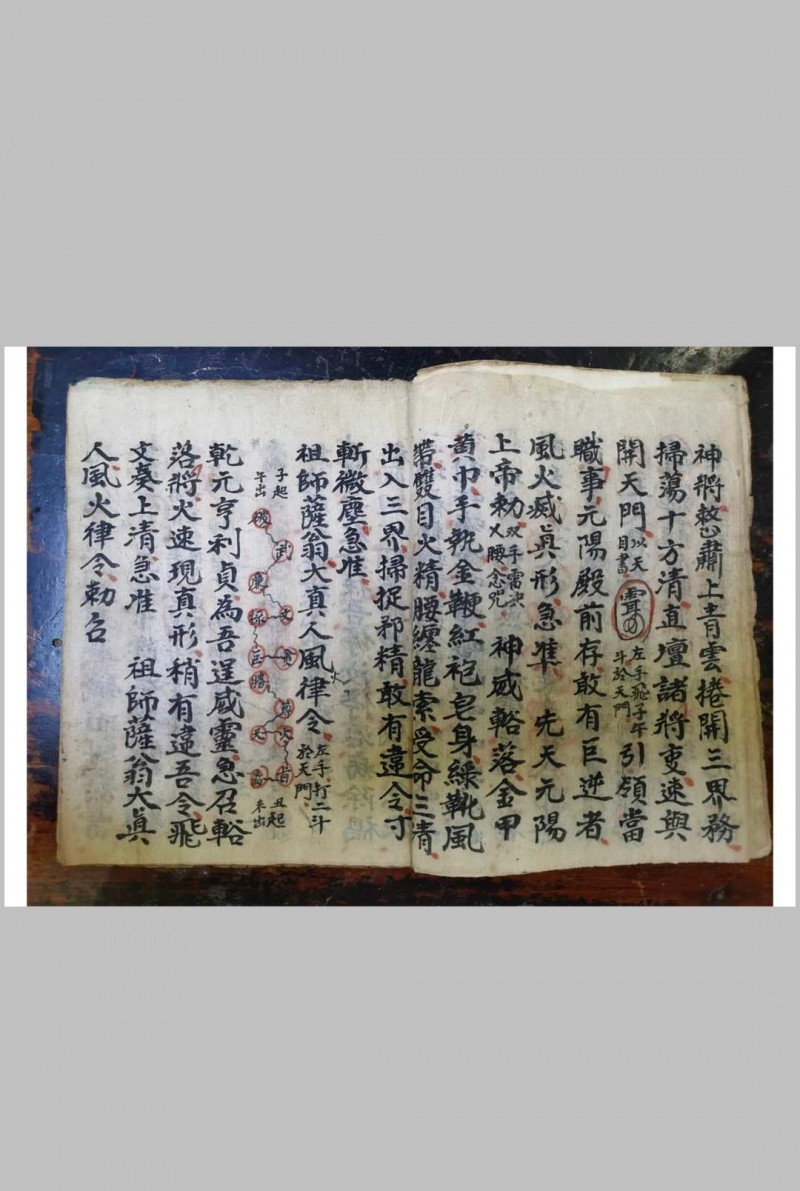 神將愗肅上青雲捲開三界務
掃蕩十方清直壇諸將吏速與
開天門以天目書 左手飛子午斗於天門引領當
職事元陽殿前存敢有巨逆者
風火威真形急準 先天元陽
上帝勅双手雷決乂腰念咒 神威豁落金甲
黃巾手執金鞭紅袍皂身綠靴風
帶雙目火精腰纏龍索受命三清
出入三界掃捉邪精敢有違令寸
斬微塵急准
祖師薩翁大真人風火律令左手打二斗於天門
子起午出
破 武 廉 文 祿 貪 巨
丑起未出
乾元亨利貞為吾逞威靈急召豁
落將火速現真形稍有違吾令飛
文奏上清急准 祖師薩翁大真
人風火律令勅召